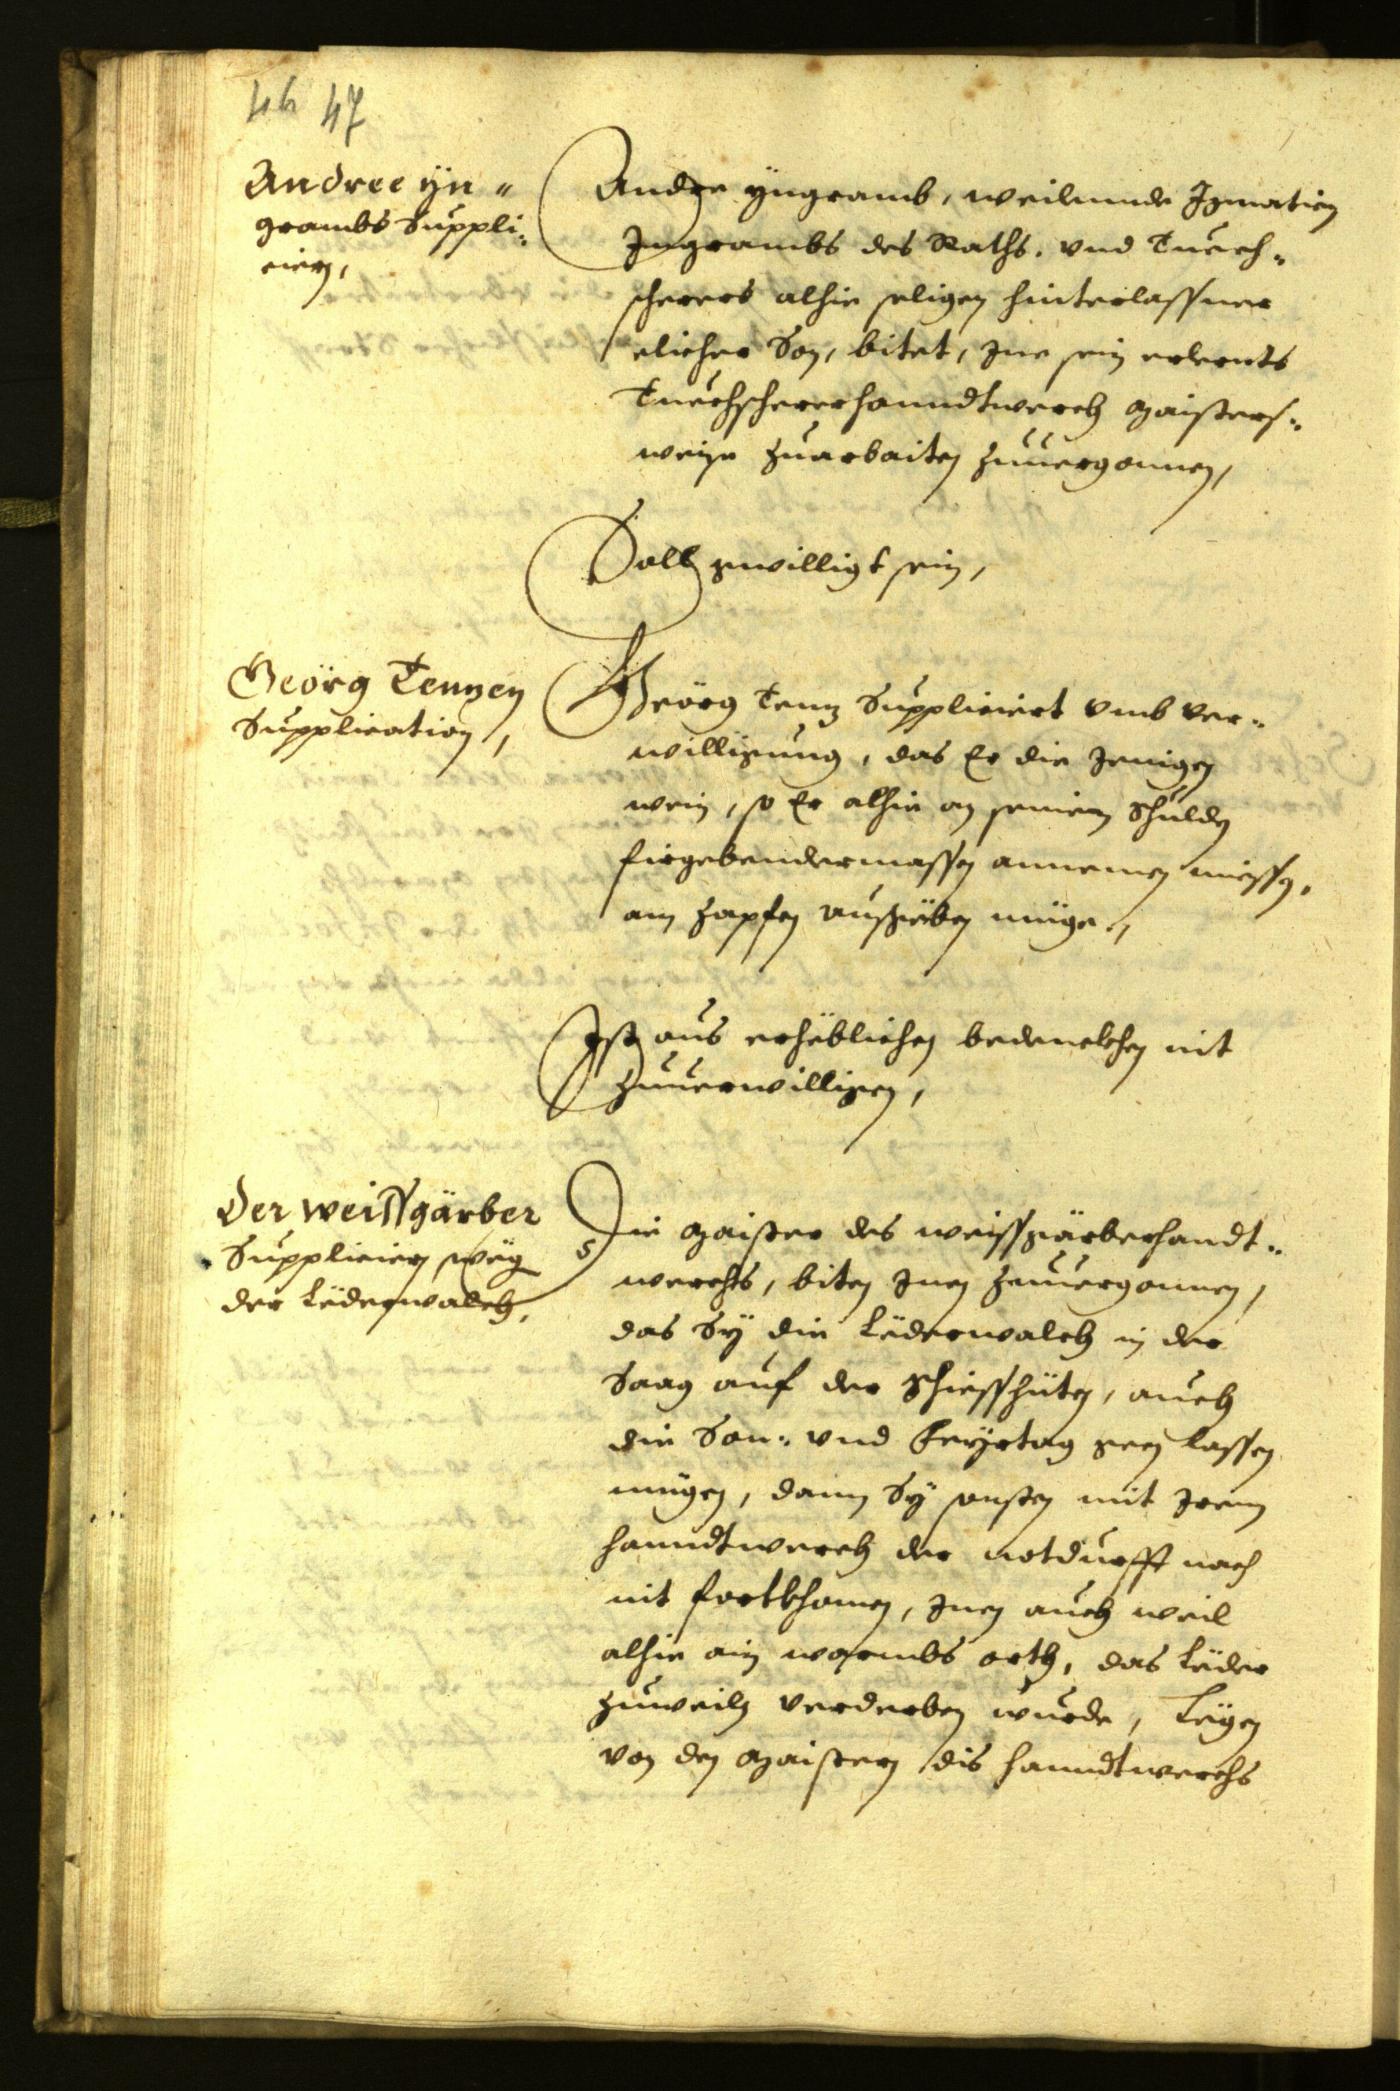 46 47
Andree ÿn-
grambs Suppli-
cirn,
Andre ÿngramb, weilunde Ignatien
Ingrambs des Raths, vnd Tuech-
scherers alhie seligen hinterlassner
elicher Son, bitet, Ime sein erlernts
Tuechschererhanndtwerch maisters-
weise zuarbaiten zuuergonnen,
Soll gwilligt sein,
Geörg Tennen
Supplication,
Geörg Tenn Suppliciert vmb ver-
willigung, das Er die Jenigen
wein, so Er alhie an seinen schulden
firgebendermassen annemen miessen,
am Zapfen ausgeben müge,
Ist aus erheblichen bedenckhen nit
zuuerwilligen,
Der weissgärber
Supplicirn weg
der Lederwalch,
Die maister des weissgärberhandt-
werchs, biten Inen zuuergonnen,
das Sÿ die Lederwalch in der
Saag auf der schiesshüten, auch
die Son- vnd Feyrtag geen lassen
mügen, dann Sÿ sonsten mit Irem
hanndtwerch der notdurfft nach
nit fortkhomen, Inen auch weil
alhie ain warmbs orth, das Leder
zuweiln verderben wurde, Legen
von den maistern dis hanndtwerchs